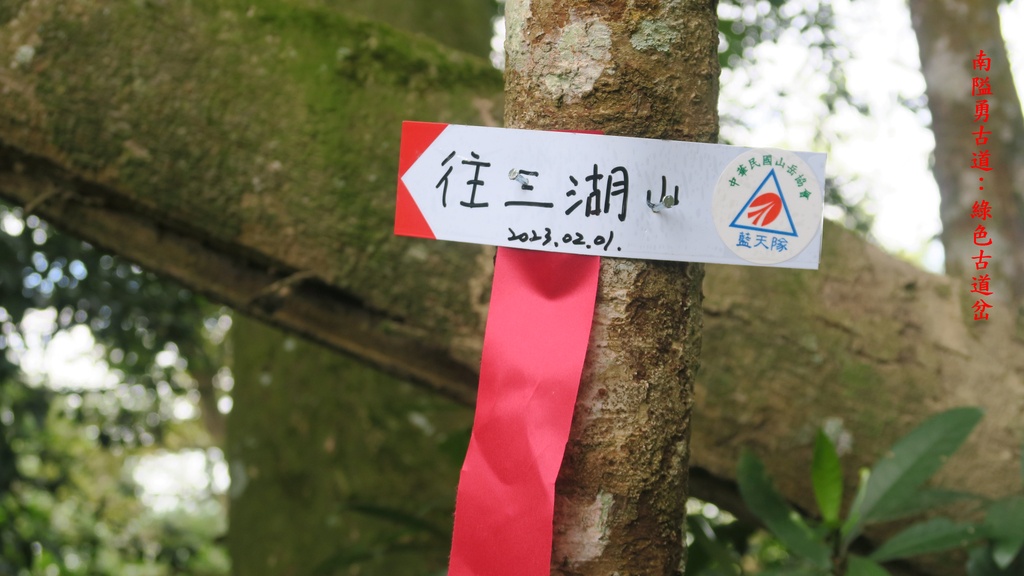 往三湖山
2023.02.01.
中華民國山岳協會
藍天隊
南隘勇古道：綠色古道岔